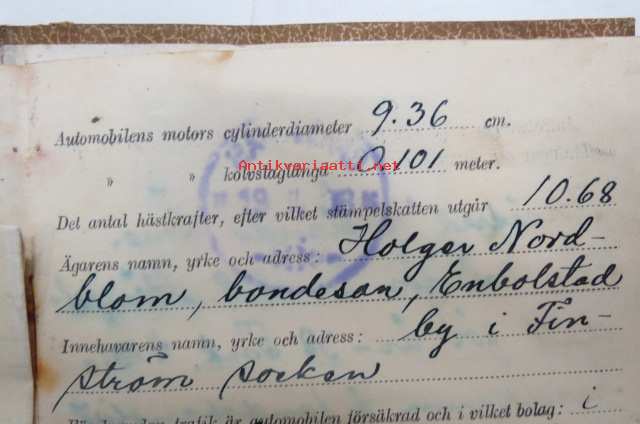 Automobilens motors cylinderdiameter 9.36 cm.
" " kolvslaglängd 0,101 meter.
Antikvariaatti.net
Det antal hästkrafter, efter vilket stämpelskatten utgår 10.68
Ägarens namn, yrke och adress: Holger Nord-
blom, bondeson, Enbolstad
Innehavarens namn, yrke och adress: by i Fin-
ström socken
trafik är automobilen försäkrad och i vilket bolag: i